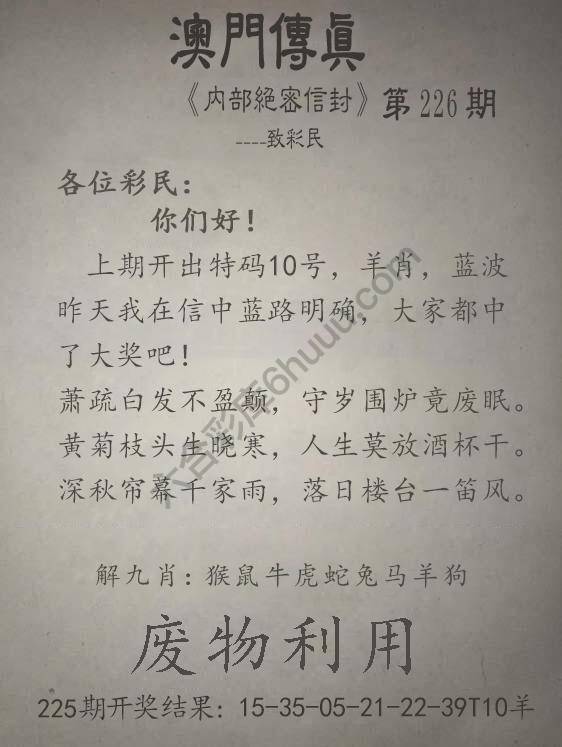 澳門傳眞
《内部絕密信封》第226期
----致彩民
各位彩民：
你们好！
上期开出特码10号，羊肖，蓝波
昨天我在信中蓝路明确，大家都中
了大奖吧！
萧疏白发不盈颠，守岁围炉竟废眠。
黄菊枝头生晓寒，人生莫放酒杯干。
深秋帘幕千家雨，落日楼台一笛风。
解九肖：猴鼠牛虎蛇兔马羊狗
废物利用
225期开奖结果：15-35-05-21-22-39T10羊
六合彩库6huuu.com